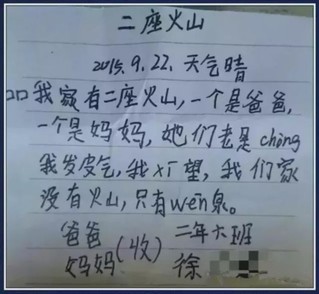 二座火山
2015.9.22. 天气晴
我家有二座火山,一个是爸爸,
一个是妈妈,她们老是chōng
我发皮气,我X丅望,我们家
没有火山,只有wēn泉。
爸爸
妈妈(收)
二年六班
徐